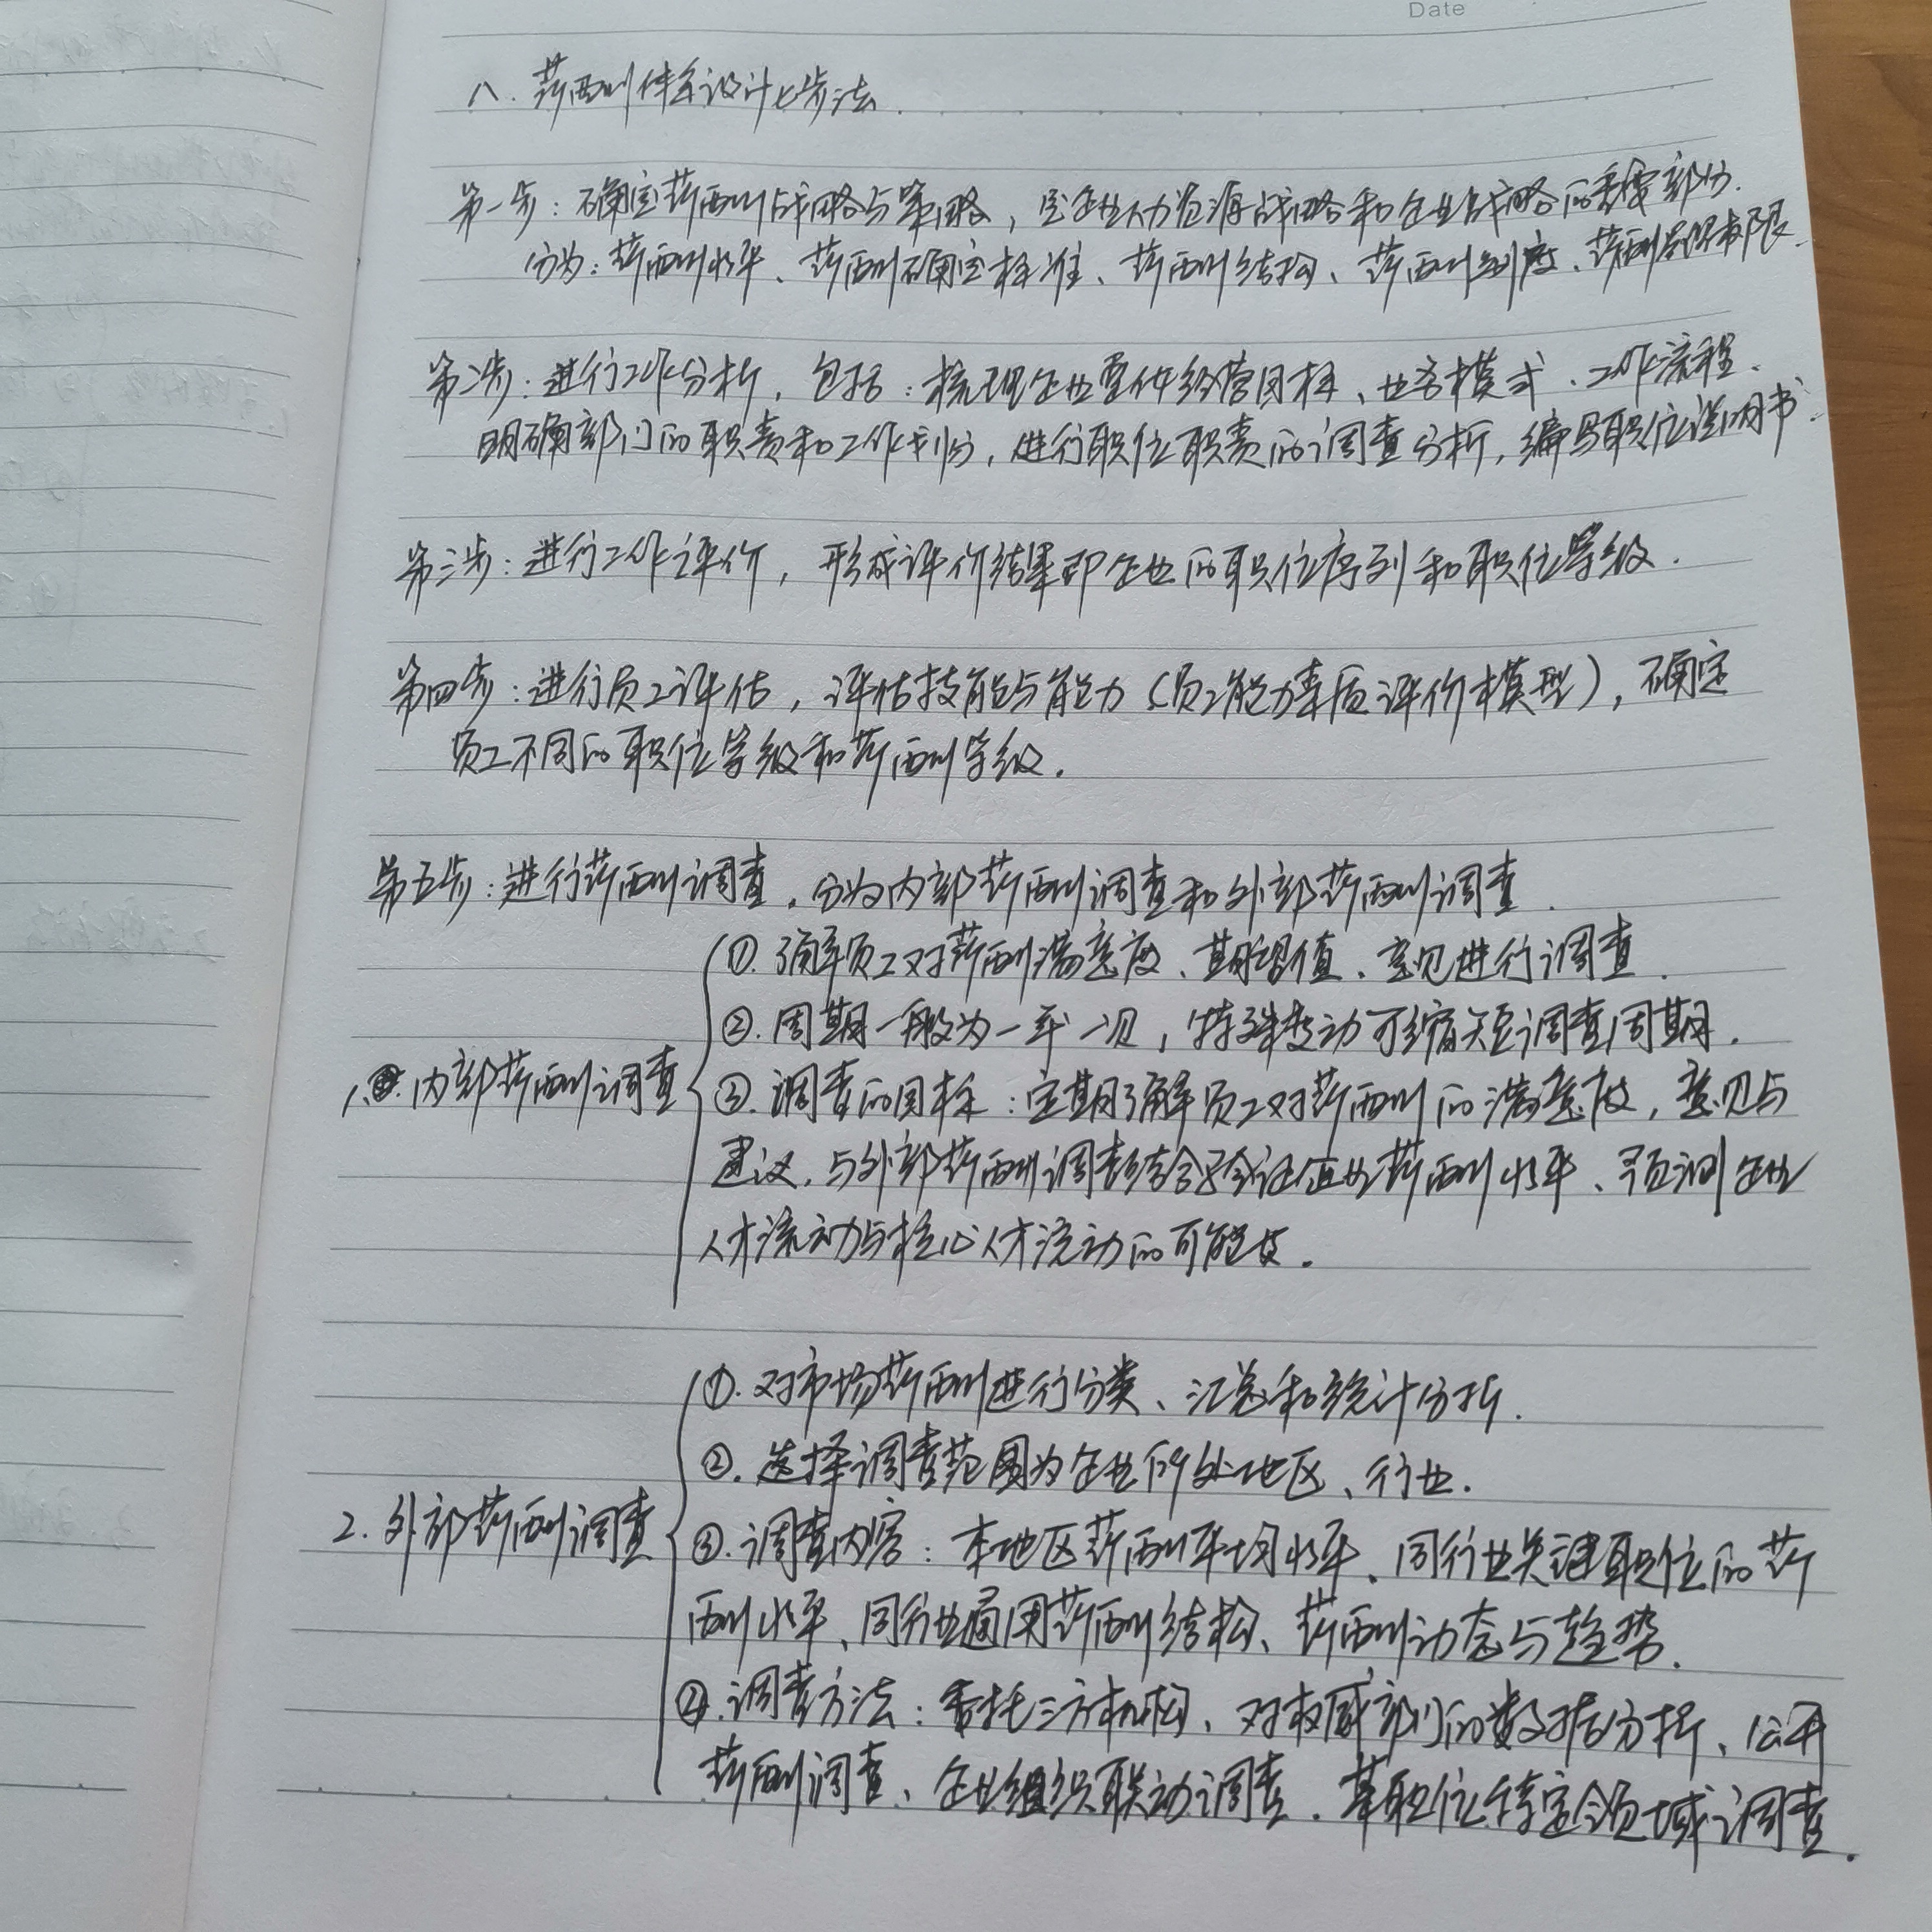 Date
八. 薪酬体系设计七步法.
第一步: 确定薪酬战略与策略, 是企业人力资源战略和企业战略的重要部分.
分为: 薪酬水平、薪酬确定标准、薪酬结构、薪酬制度、薪酬管理权限.
第二步: 进行工作分析, 包括: 梳理企业整体经营目标、业务模式、工作流程.
明确部门的职责和工作划分, 进行职位职责的调查分析, 编写职位说明书.
第三步: 进行工作评价, 形成评价结果即企业的职位序列和职位等级.
第四步: 进行员工评估, 评估技能与能力 (员工能力素质评价模型), 确定
员工不同的职位等级和薪酬等级.
第五步: 进行薪酬调查, 分为内部薪酬调查和外部薪酬调查.
①. 了解员工对薪酬满意度、期望值、意见进行调查.
②. 周期一般为一年一次, 特殊变动可缩短调查周期.
1. 内部薪酬调查
③. 调查的目标: 定期了解员工对薪酬的满意度, 意见与
建议, 与外部薪酬调查结合验证企业薪酬水平、预测企业
人才流动与核心人才流动的可能度.
①. 对市场薪酬进行分类、汇总和统计分析.
②. 选择调查范围为企业所处地区、行业.
2. 外部薪酬调查
③. 调查内容: 本地区薪酬平均水平、同行业关键职位的薪
酬水平、同行业通用薪酬结构、薪酬动态与趋势.
④. 调查方法: 委托三方机构、对权威部门的数据分析、公开
薪酬调查、企业组织联动调查、某职位特定领域调查.